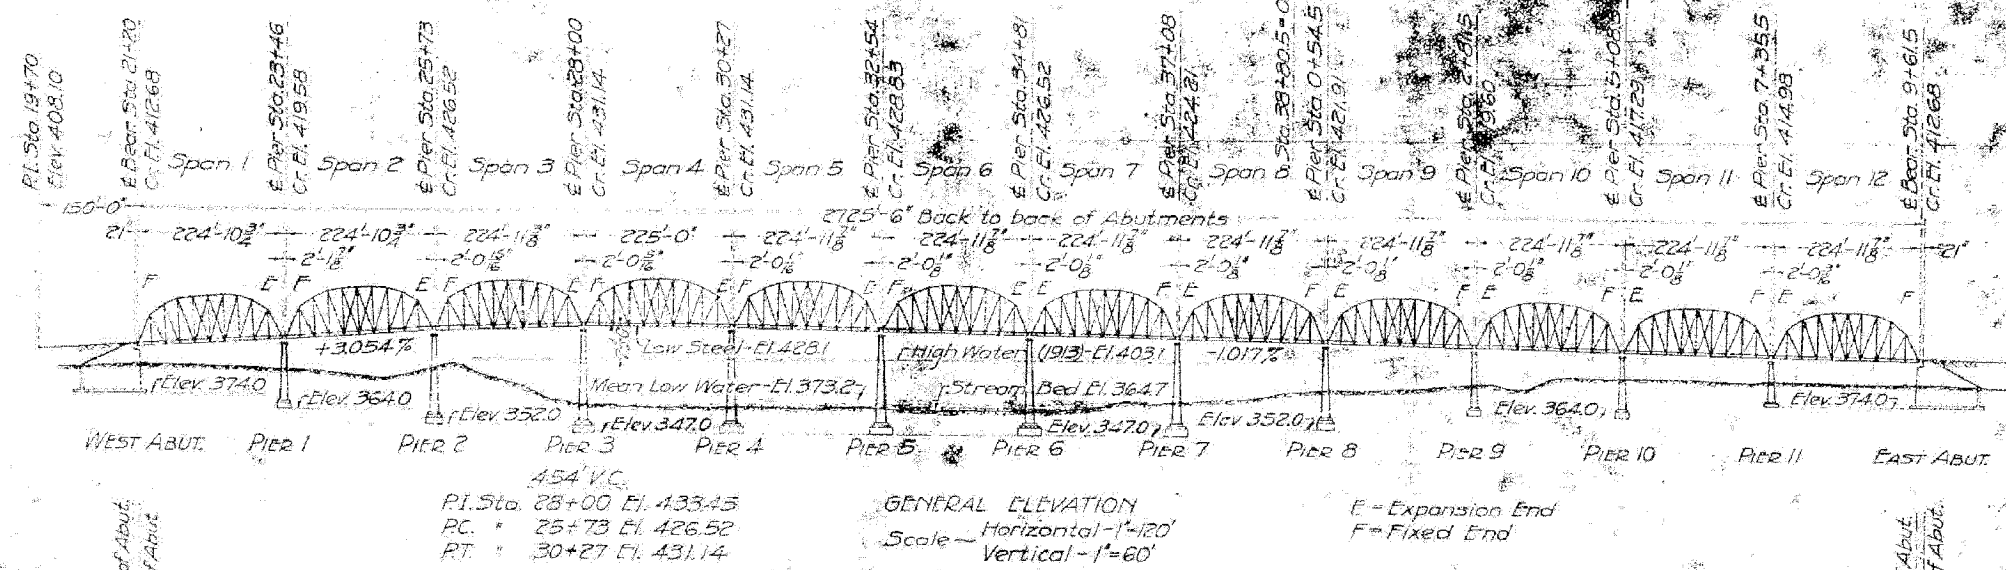 P.I. Sta. 19+70
Elev. 408.10
℄ Bear. Sta. 21+20
Cr. El. 412.68
Span 1
℄ Pier Sta. 23+46
Cr. El. 419.58
Span 2
℄ Pier Sta. 25+73
Cr. El. 426.52
Span 3
℄ Pier Sta. 28+00
Cr. El. 431.14
Span 4
℄ Pier Sta. 30+27
Cr. El. 431.14
Span 5
℄ Pier Sta. 32+54
Cr. El. 428.83
Span 6
℄ Pier Sta. 34+81
Cr. El. 426.52
Span 7
℄ Pier Sta. 37+08
Cr. El. 424.21
Span 8
Sta. 38+80.5=0
℄ Pier Sta. 0+54.5
Cr. El. 421.91
Span 9
℄ Pier Sta. 2+81.5
Cr. El. 419.60
Span 10
℄ Pier Sta. 5+08.5
Cr. El. 417.29
Span 11
℄ Pier Sta. 7+35.5
Cr. El. 414.98
Span 12
℄ Bear. Sta. 9+61.5
Cr. El. 412.68
150'-0"
2725'-6" Back to back of Abutments
21" 224'-10¾" 224'-10¾" 224'-11⅞" 225'-0" 224'-11⅞" 224'-11⅞" 224'-11⅞" 224'-11⅞" 224'-11⅞" 224'-11⅞" 224'-11⅞" 224'-11⅞" 21"
2'-1⅞" 2'-0⅛" 2'-0⅛" 2'-0⅛" 2'-0⅛" 2'-0⅛" 2'-0⅛"
F E F E F E F E F E F E E F E F E F E F E F E F
+3.054% Low Steel-El. 428.1 High Water (1913)-El. 403.1 -1.017%
Elev. 374.0 Elev. 364.0 Elev. 352.0 Mean Low Water-El. 373.2 Elev. 347.0 Stream Bed El. 364.7 Elev. 347.0 Elev. 352.0 Elev. 364.0 Elev. 374.0
WEST ABUT. PIER 1 PIER 2 PIER 3 PIER 4 PIER 5 PIER 6 PIER 7 PIER 8 PIER 9 PIER 10 PIER 11 EAST ABUT.
454' V.C.
P.I. Sta. 28+00 El. 433.45
P.C. " 25+73 El. 426.52
P.T. " 30+27 El. 431.14
GENERAL ELEVATION
Scale — Horizontal-1"=120'
Vertical-1"=60'
E = Expansion End
F = Fixed End
of Abut.
f Abut.
Abut.
f Abut.